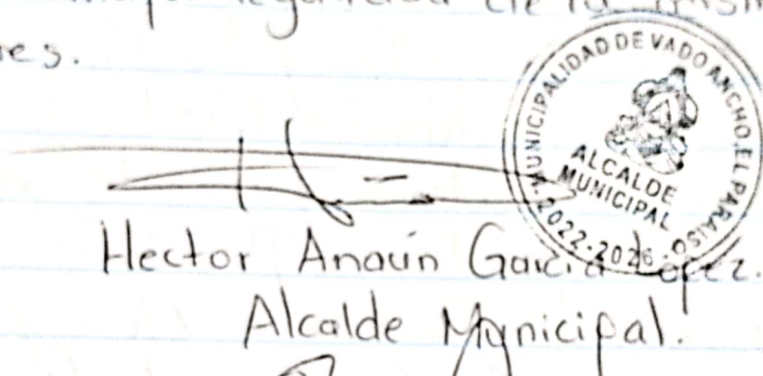 legalidad de la
res.
MUNICIPALIDAD DE VADO ANCHO, EL PARAISO
ALCALDE
MUNICIPAL
2022-2026
Hector Anaún García López.
Alcalde Municipal.